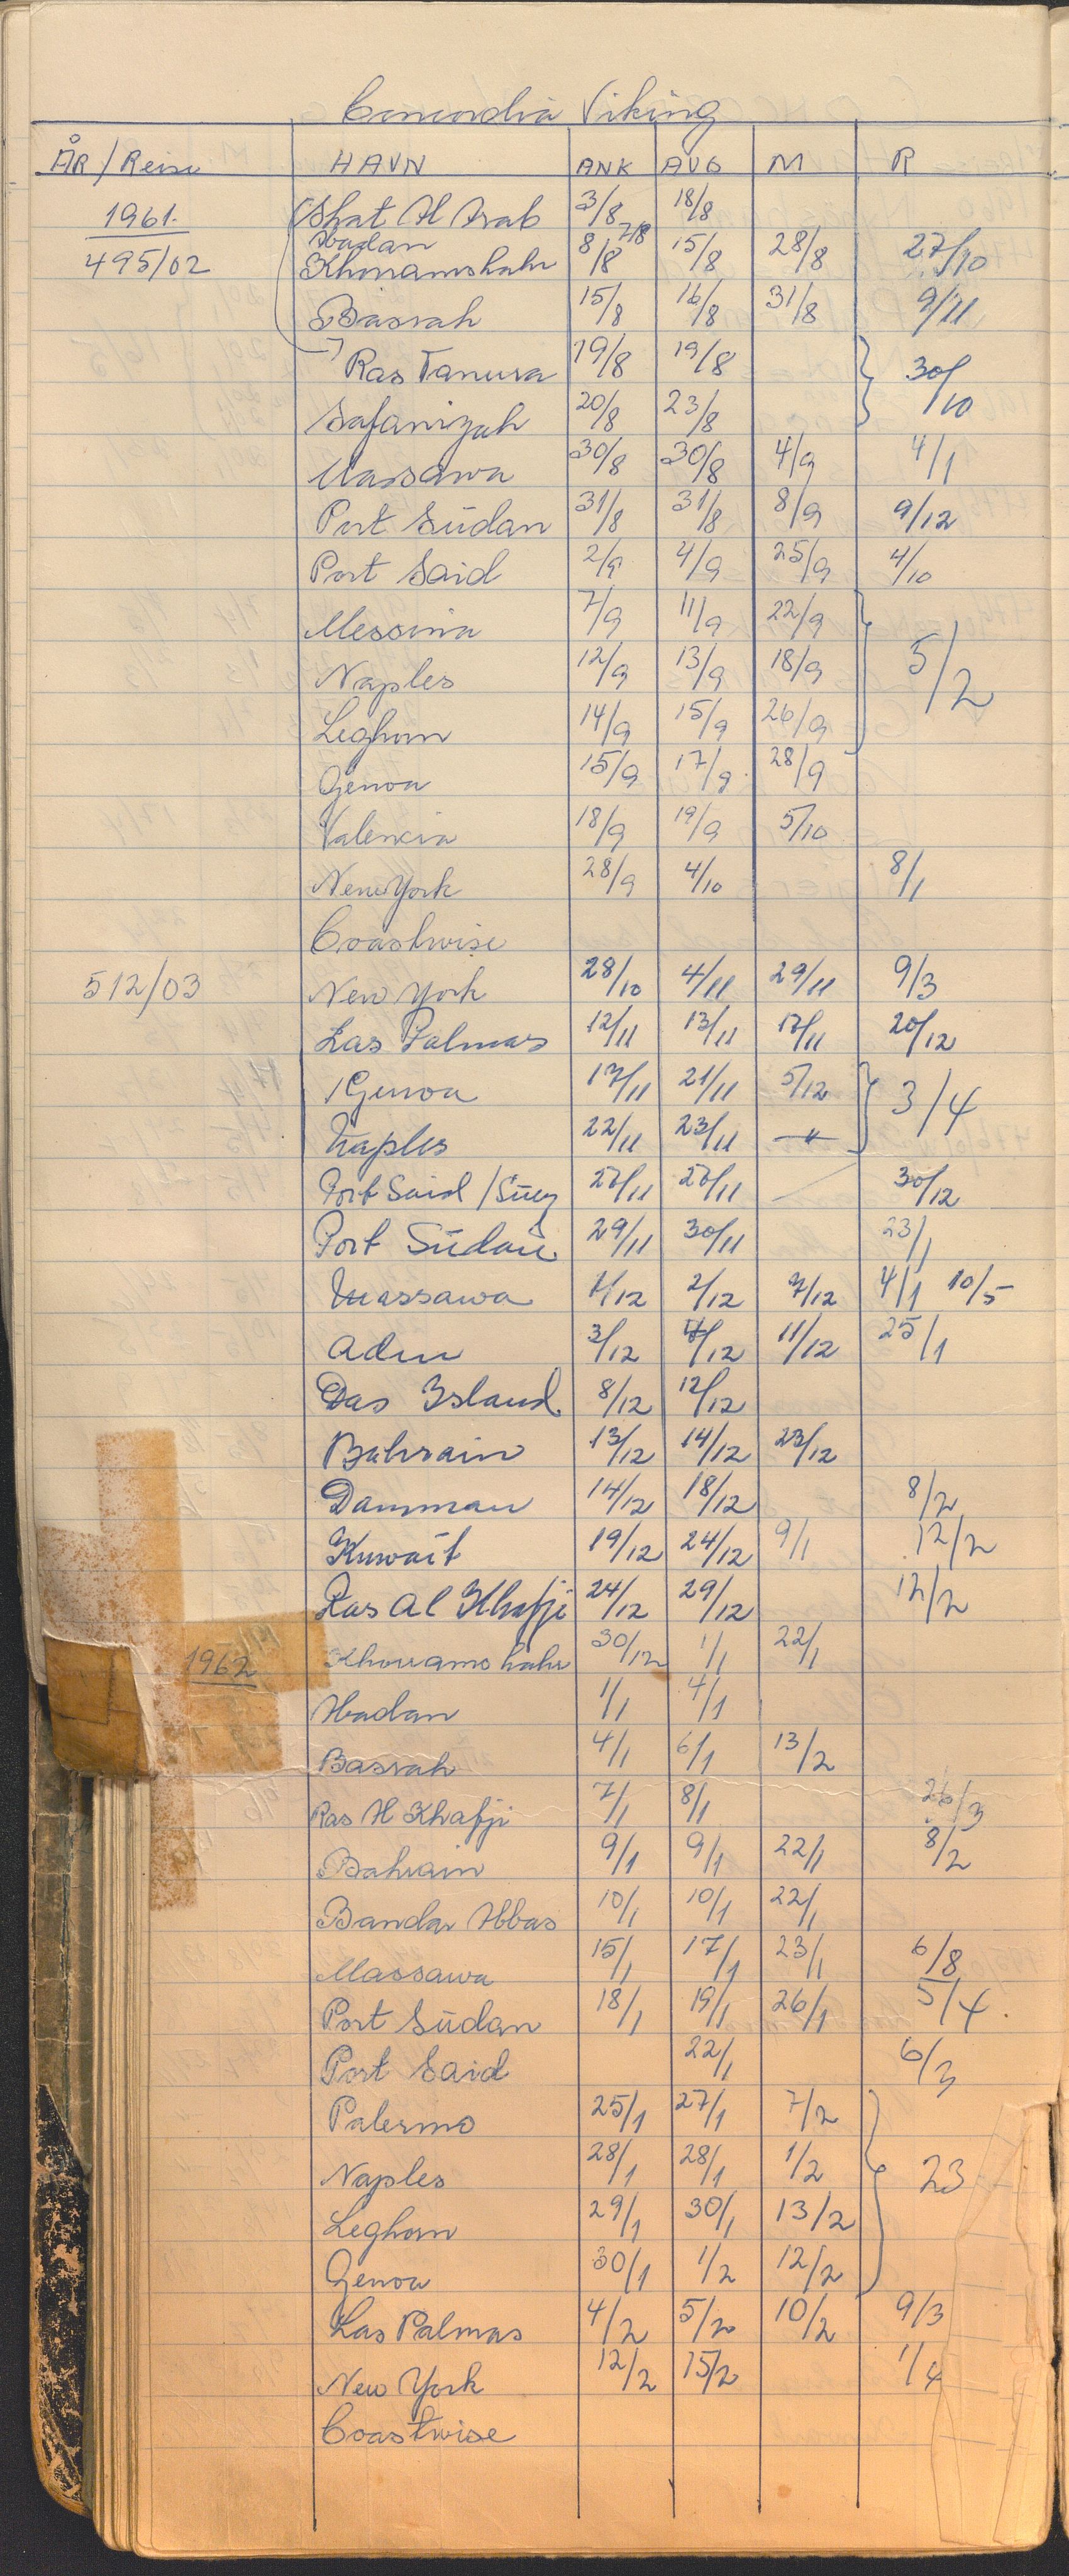 Concordia Viking
ÅR / Reise HAVN ANK AVG M R
1961. Shat Al Arab 3/8 18/8
Abadan 7/8
495/02 Khorramshahr 8/8 15/8 28/8 27/10
Basrah 15/8 16/8 31/8 9/11
Ras Tanura 19/8 19/8 30/10
Safaniyah 20/8 23/8
Massawa 30/8 30/8 4/9 4/1
Port Sudan 31/8 31/8 8/9 9/12
Port Said 2/9 4/9 25/9 4/10
Messina 7/9 11/9 22/9
Naples 12/9 13/9 18/9 5/2
Leghorn 14/9 15/9 26/9
Genoa 15/9 17/9 28/9
Valencia 18/9 19/9 5/10
New York 28/9 4/10 8/1
Coastwise
512/03 New York 28/10 4/11 29/11 9/3
Las Palmas 12/11 13/11 17/11 20/12
Genoa 17/11 21/11 5/12 3/4
Naples 22/11 23/11 -"-
Port Said / Suez 27/11 27/11 30/12
Port Sudan 29/11 30/11 23/1
Massawa 1/12 2/12 7/12 4/1 10/5
Aden 3/12 4/12 11/12 25/1
Das Island 8/12 12/12
Bahrain 13/12 14/12 23/12
Damman 14/12 18/12 8/2
Kuwait 19/12 24/12 9/1 12/2
Ras Al Khafji 24/12 29/12 12/2
1962 Khorramshahr 30/12 1/1 22/1
Abadan 1/1 4/1
Basrah 4/1 6/1 13/2
Ras Al Khafji 7/1 8/1 26/3
Bahrain 9/1 9/1 22/1 8/2
Bandar Abbas 10/1 10/1 22/1
Massawa 15/1 17/1 23/1 6/8
Port Sudan 18/1 19/1 26/1 5/4.
Port Said 22/1 6/3
Palermo 25/1 27/1 7/2
Naples 28/1 28/1 1/2 23
Leghorn 29/1 30/1 13/2
Genoa 30/1 1/2 12/2
Las Palmas 4/2 5/2 10/2 9/3
New York 12/2 15/2 1/4
Coastwise